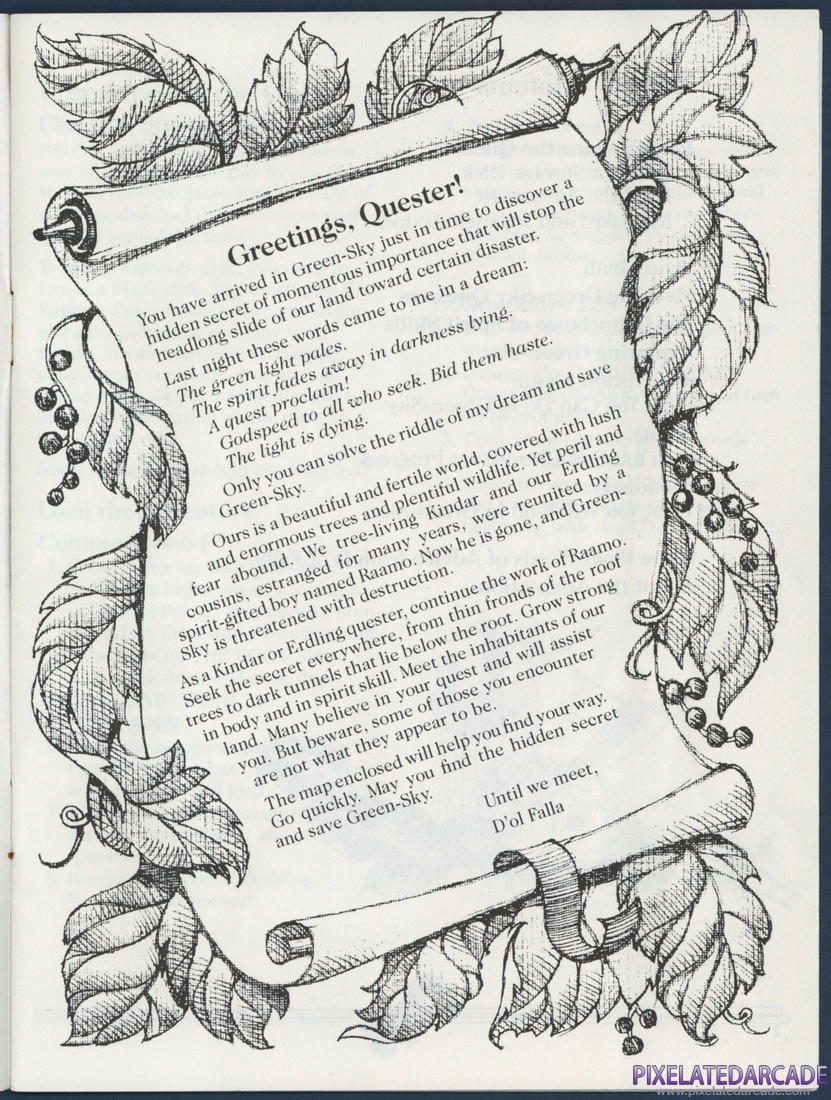 Greetings, Quester!
You have arrived in Green-Sky just in time to discover a
hidden secret of momentous importance that will stop the
headlong slide of our land toward certain disaster.
Last night these words came to me in a dream:
The green light pales.
The spirit fades away in darkness lying.
A quest proclaim!
Godspeed to all who seek. Bid them haste.
The light is dying.
Only you can solve the riddle of my dream and save
Green-Sky.
Ours is a beautiful and fertile world, covered with lush
and enormous trees and plentiful wildlife. Yet peril and
fear abound. We tree-living Kindar and our Erdling
cousins, estranged for many years, were reunited by a
spirit-gifted boy named Raamo. Now he is gone, and Green-
Sky is threatened with destruction.
As a Kindar or Erdling quester, continue the work of Raamo.
Seek the secret everywhere, from thin fronds of the roof
trees to dark tunnels that lie below the root. Grow strong
in body and in spirit skill. Meet the inhabitants of our
land. Many believe in your quest and will assist
you. But beware, some of those you encounter
are not what they appear to be.
The map enclosed will help you find your way.
Go quickly. May you find the hidden secret
and save Green-Sky.
Until we meet,
D'ol Falla
PIXELATEDARCADE
www.pixelatedarcade.com